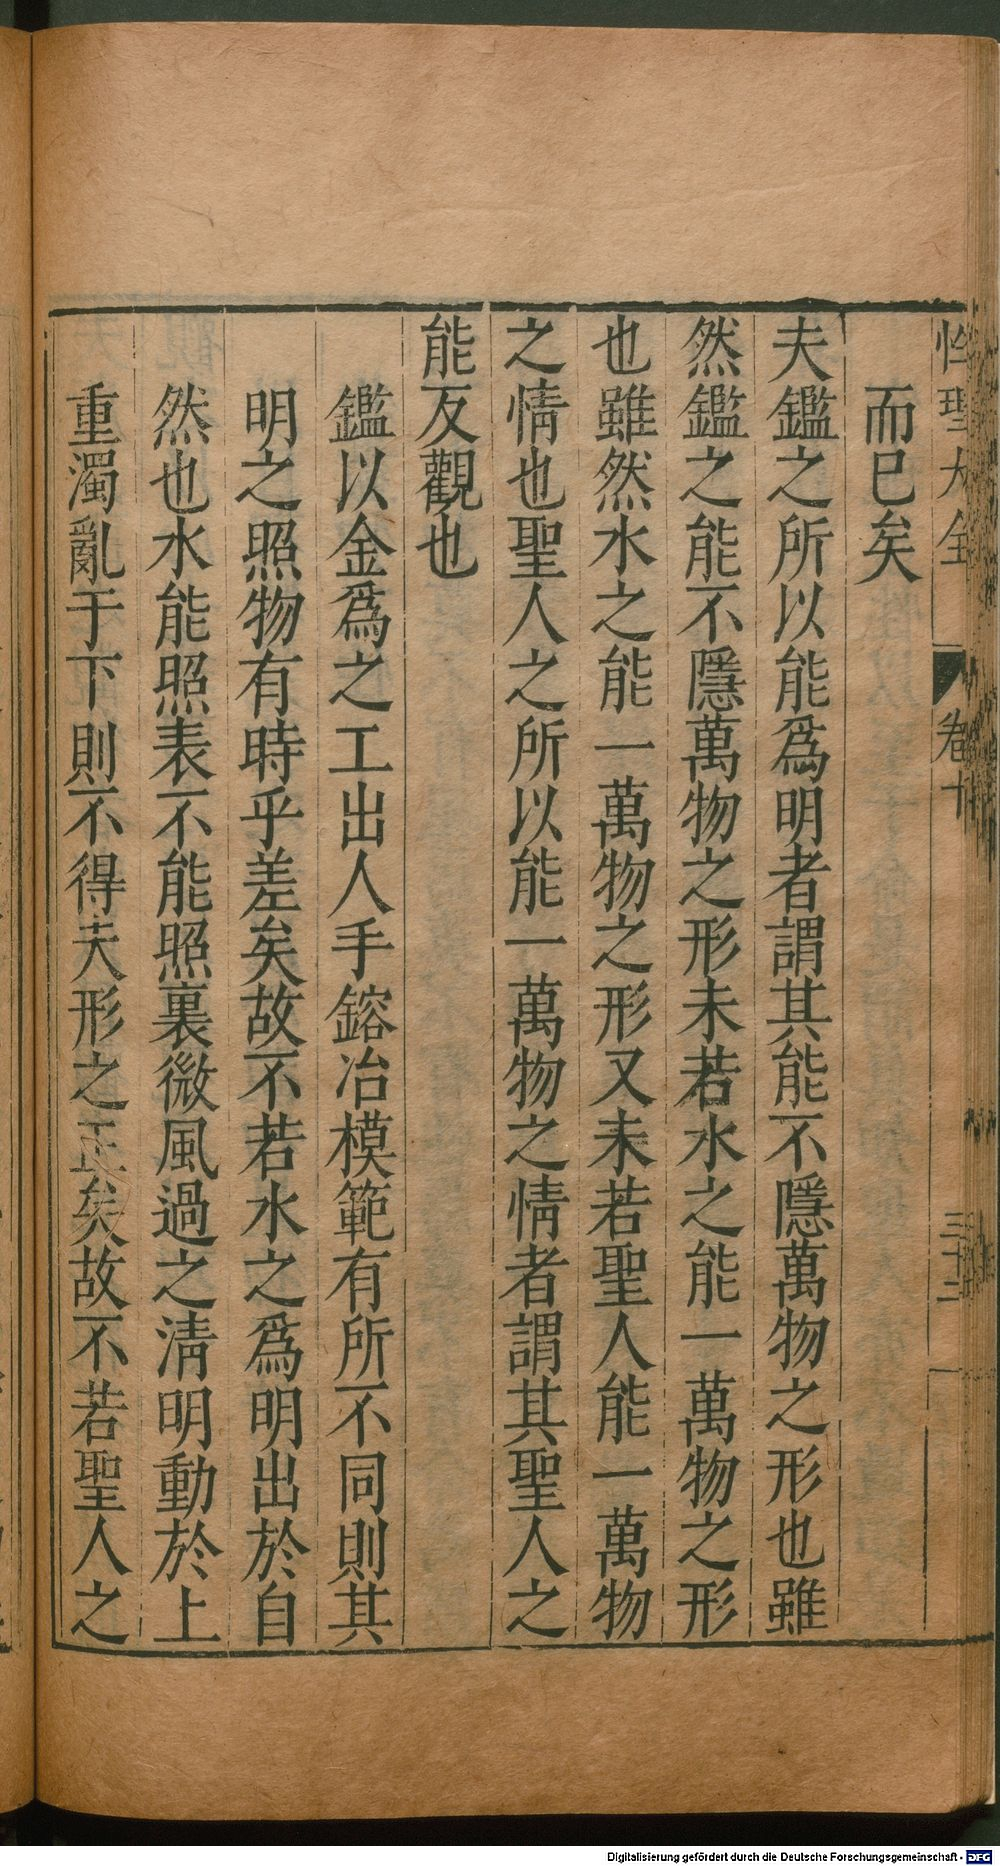 性理大全 卷十 三十二
而已矣
夫鑑之所以能爲明者謂其能不隱萬物之形也雖
然鑑之能不隱萬物之形未若水之能一萬物之形
也雖然水之能一萬物之形又未若聖人能一萬物
之情也聖人之所以能一萬物之情者謂其聖人之
能反觀也
鑑以金爲之工出人手鎔冶模範有所不同則其
明之照物有時乎差矣故不若水之爲明出於自
然也水能照表不能照裏微風過之淸明動於上
重濁亂于下則不得夫形之正矣故不若聖人之
Digitalisierung gefördert durch die Deutsche Forschungsgemeinschaft - DFG